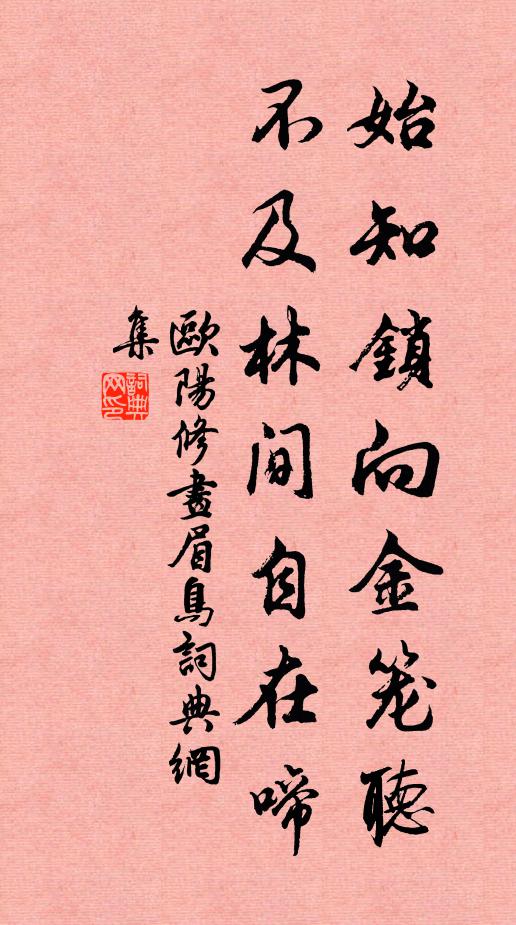 始知鎖向金笼聽
不及林間自在啼
歐陽修畫眉鳥詞典網
集
詞典
网印